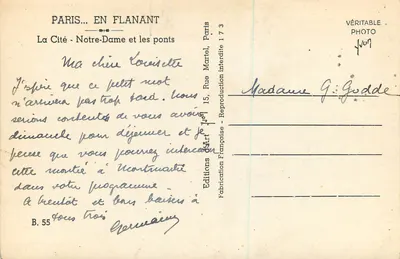 PARIS... EN FLANANT
La Cité - Notre-Dame et les ponts
Ma chère Louisette
J'espère que ce petit mot
n'arrivera pas trop tard. Nous
serions contentes de vous avoir
dimanche pour déjeuner et je
pense que vous pourrez intercaler
cette montée à Montmartre
dans votre programme.
A bientôt et bons baisers à
tous trois
Germaine
B. 55
Editions d'Art 15, Rue Martel, Paris
Fabrication Française - Reproduction interdite 173
VÉRITABLE
PHOTO
Madame G. Goddé